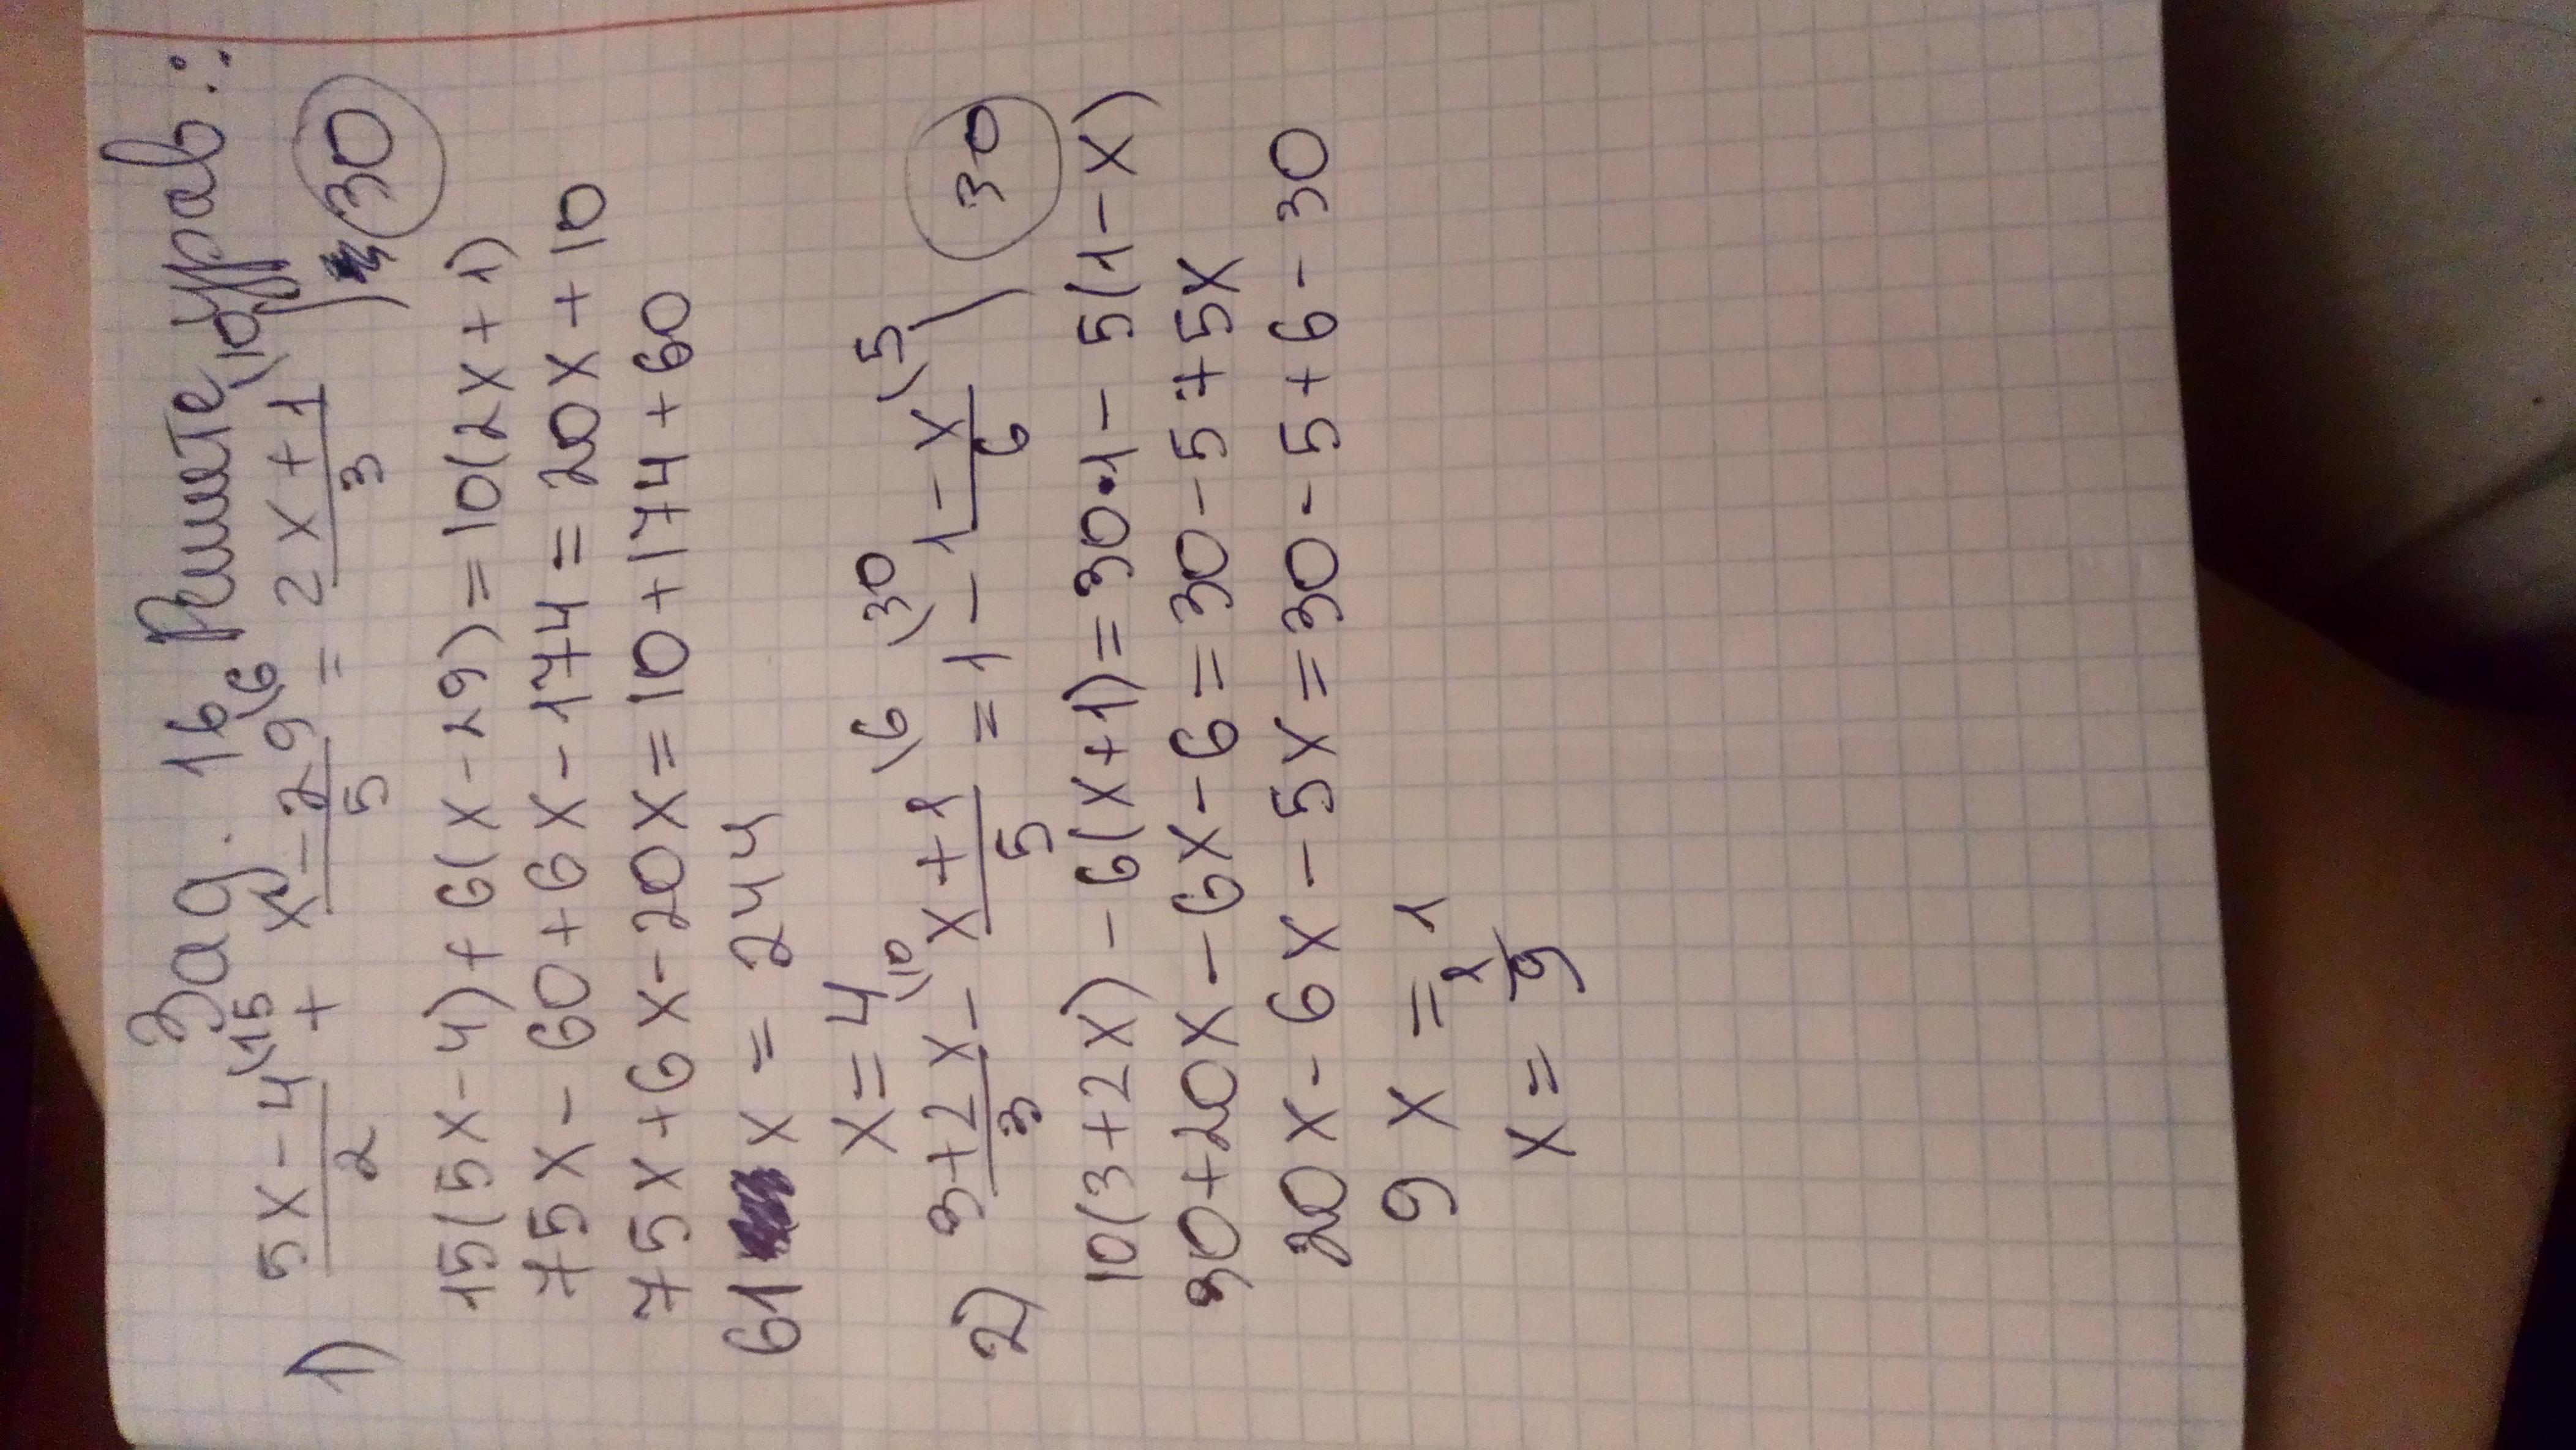 Зад. 16 Решите урав.:
1) (5x-4)/2 (15 + (x-29)/5 (6 = (2x+1)/3 (10 / (30)
15(5x-4)+6(x-29)=10(2x+1)
75x-60+6x-174=20x+10
75x+6x-20x=10+174+60
61x=244
x=4
2) (3+2x)/3 (10 - (x+1)/5 (6 = 1 (30 - (1-x)/6 (5 / (30)
10(3+2x)-6(x+1)=30·1-5(1-x)
30+20x-6x-6=30-5+5x
20x-6x-5x=30-5+6-30
9x=1
x=1/9